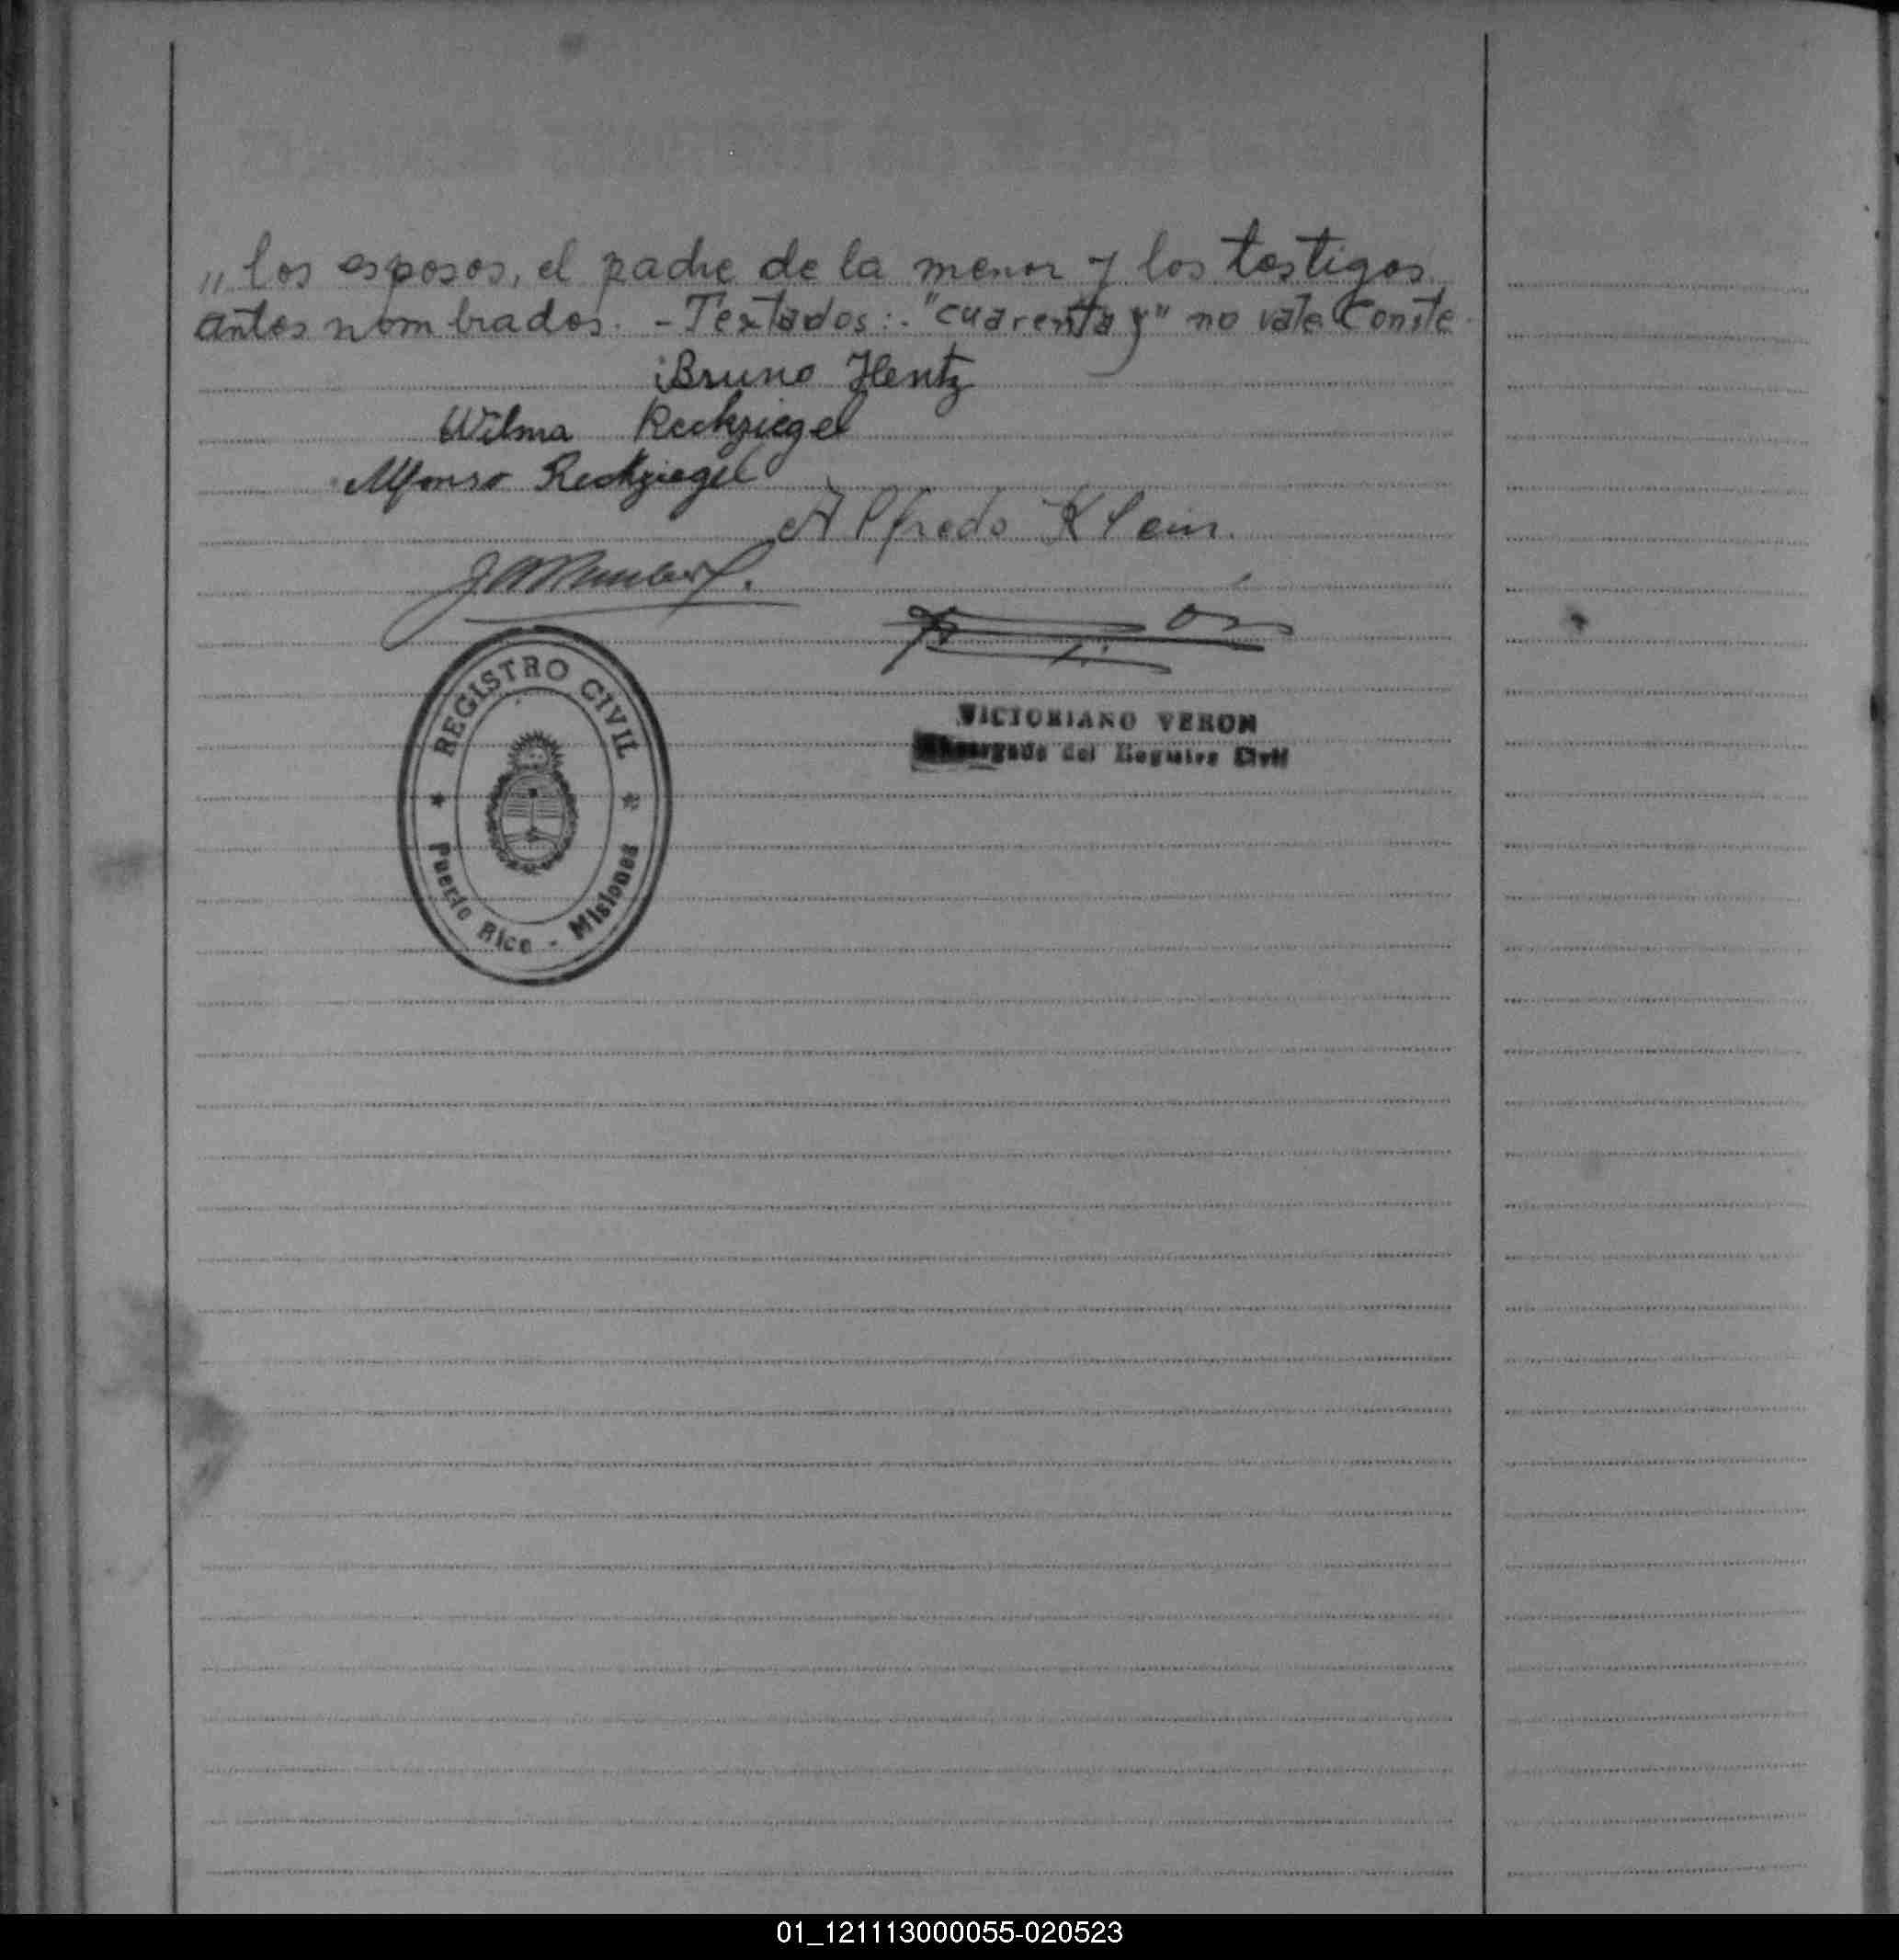 " los esposos, el padre de la menor y los testigos
antes nombrados. - Textados:. "cuarenta y" no vale Conste.
Bruno Hentz
Wilma Reckziegel
Alfonso Reckziegel
Alfredo Klein.
REGISTRO CIVIL
Puerto Rico - Misiones
VICTORIANO VERON
Encargado del Registro Civil
01_121113000055-020523